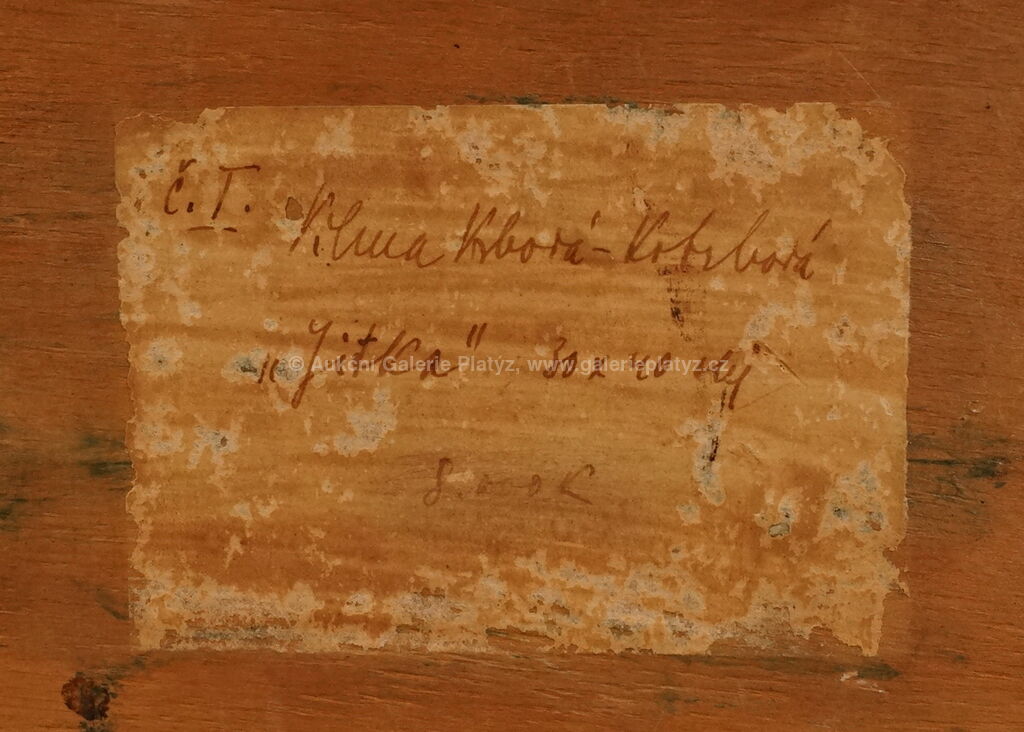 č. I. Vilma Vrbová-Kotrbová
„Jitka" 30 x 40
© Aukční Galerie Platýz, www.galerieplatyz.cz